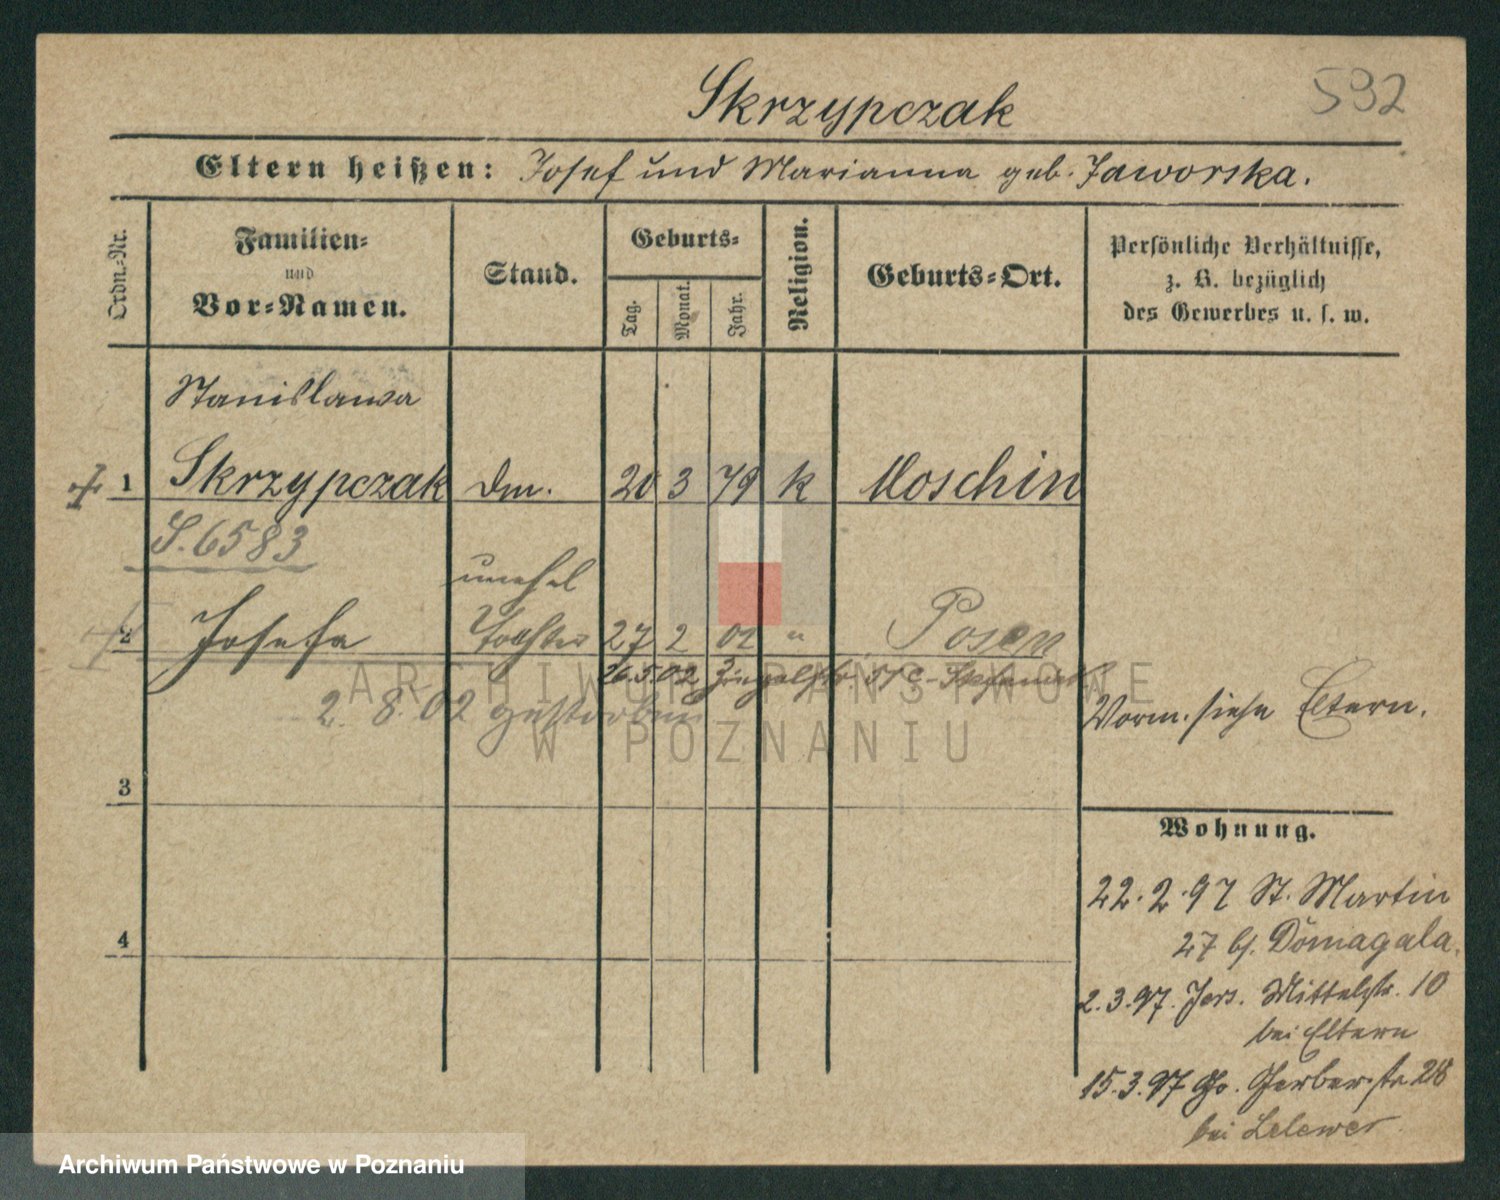 Skrzypczak
592
Eltern heißen: Josef und Marianna geb. Jaworska.
Ordn.-Nr.
Familien-
und
Vor-Namen.
Stand.
Geburts-
Tag.
Monat.
Jahr.
Religion.
Geburts-Ort.
Persönliche Verhältnisse,
z. B. bezüglich
des Gewerbes u. s. w.
Stanislawa
1 Skrzypczak Dm. 20 3 79 k Moschin
S. 6583
unehel
2 Josefa Tochter 27 2 02 " Posen
26.5.02
2. 8. 02 gestorben
Vorm. siehe Eltern.
3
Wohnung.
22.2.97 St. Martin
27 bj. Domagala.
2.3.97. Jers. Mittelstr. 10
bei Eltern
15.3.97 Gr. Gerberstr 28
bei Lelewer
4
ARCHIWUM PAŃSTWOWE
W POZNANIU
Archiwum Państwowe w Poznaniu